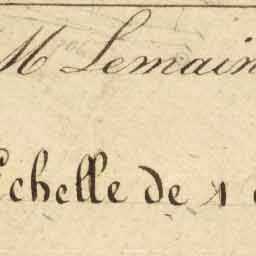 M Lemain
Echelle de 1